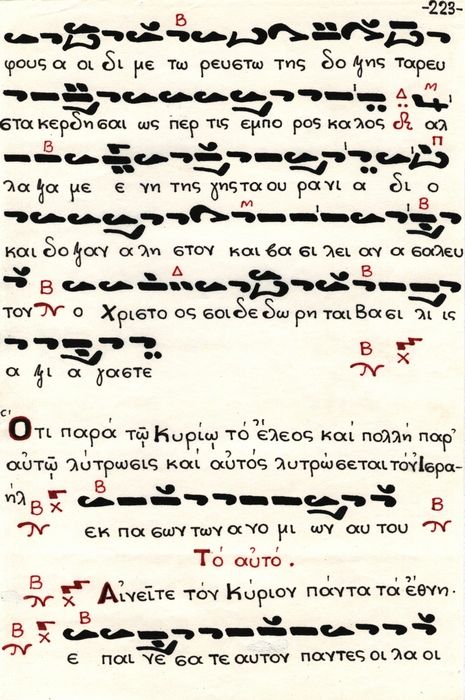 -223-
Β
φους α οι δι με τω ρευστω της δο ξης τα ρευ
Δ Μ
στα κερδη σαι ως περ τις εμπο ρος καλος αλ
Β Π
λα ξα με ε νη της γης τα ου ρα νι α δι ο
Μ Β
και δο ξαν α λη στον και βα σι λει αν α σαλευ
Β Δ Β
τον ο Χριστο ος σοι δε δω ρη ται Βα σι λι ις
α ξι α γαστε Β χ
ς'
Οτι παρά τῷ Κυρίῳ τό ἔλεος καί πολλή παρ'
αὐτῷ λύτρωσις καί αὐτός λυτρώσεται τόν Ισρα-
ήλ Β χ Β Β
εκ πα σων των α νο μι ων αυ του
Τό αὐτό.
Β χ Αἰνεῖτε τόν Κύριον πάντα τά ἔθνη.
Β χ Β
ε παι νε σα τε αυτον παντες οι λα οι